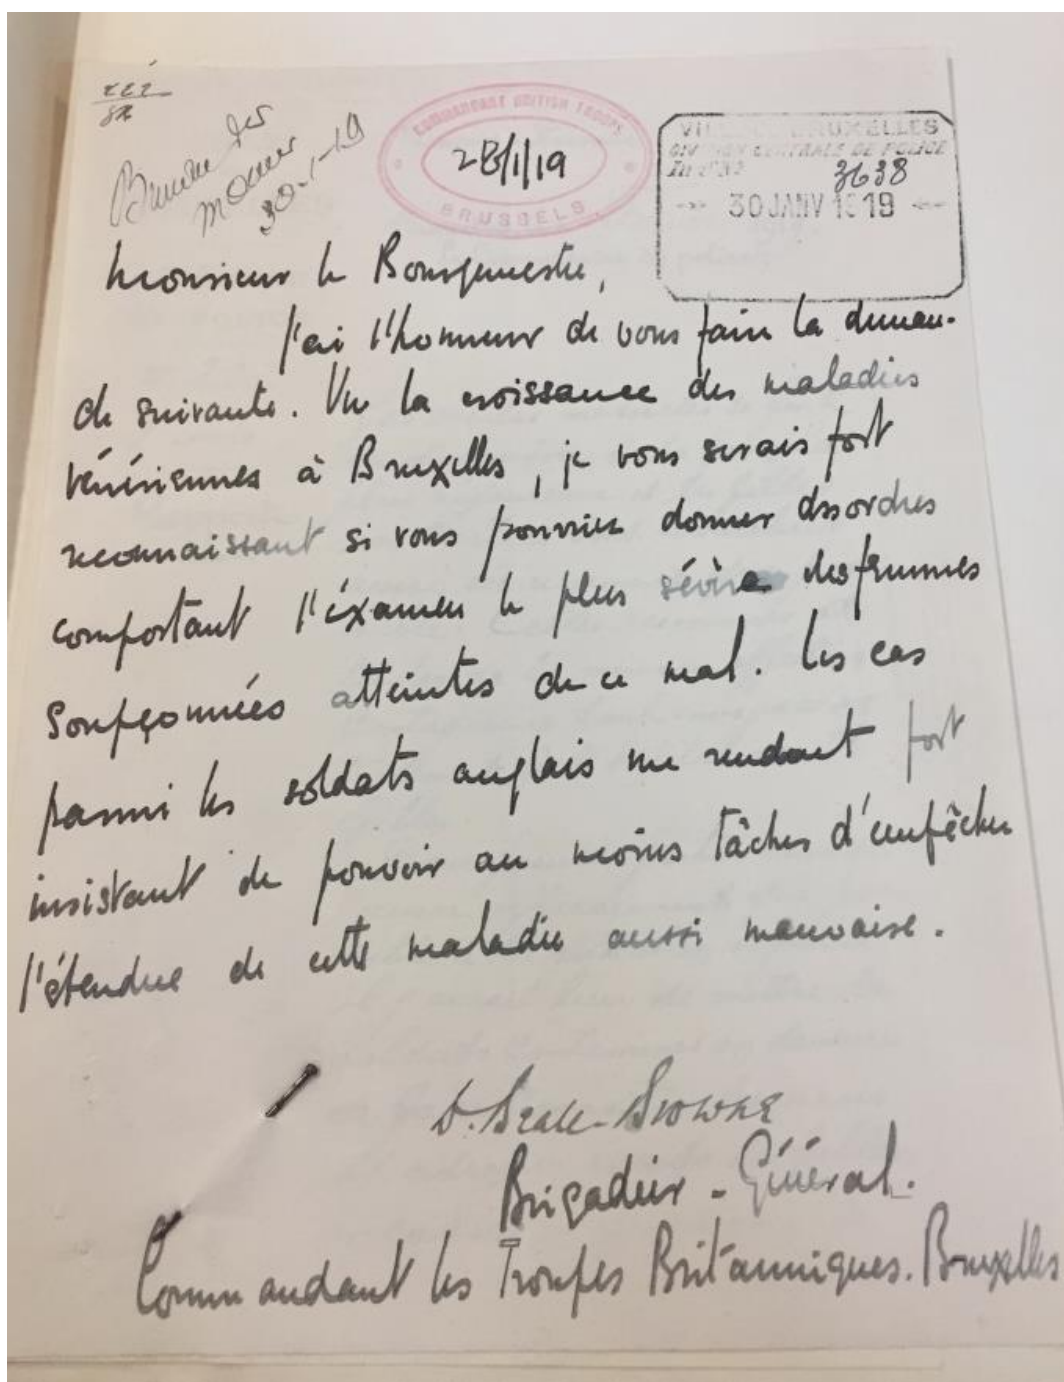 222
82
Bureau des
moeurs
30-1-19
COMMANDANT BRITISH TROOPS
28/1/19
BRUSSELS
VILLE DE BRUXELLES
DIVISION CENTRALE DE POLICE
3638
30 JANV 1919
Monsieur le Bourgmestre,
j'ai l'honneur de vous faire la deman-
de suivante. Vu la croissance des maladies
vénériennes à Bruxelles, je vous serais fort
reconnaissant si vous pourriez donner des ordres
comportant l'éxamen le plus sévère des femmes
Soupçonnées atteintes de ce mal. Les cas
parmi les soldats anglais me rendant fort
insistant de pouvoir au moins tâcher d'empêcher
l'étendue de cette maladie aussi mauvaise.
D. Beale-Browne
Brigadier-Général.
Commandant les Troupes Britanniques. Bruxelles